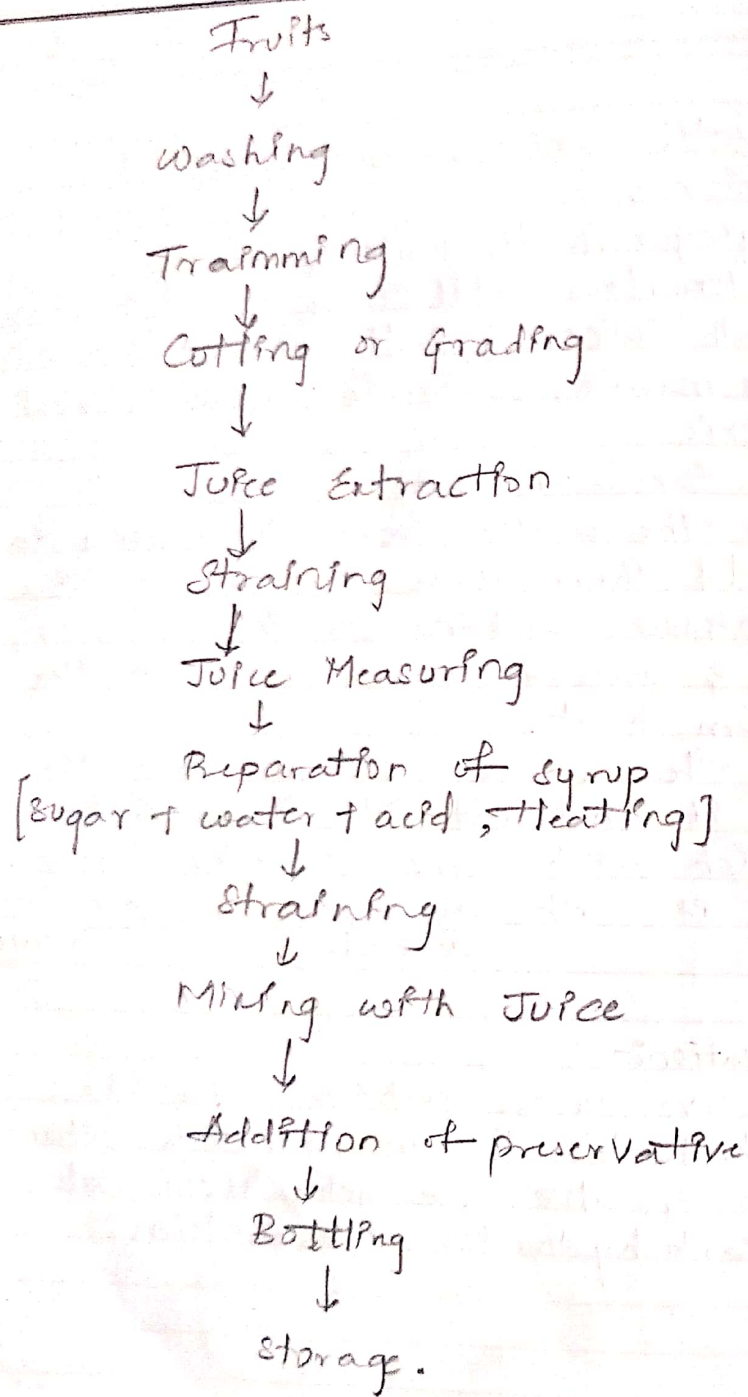 Fruits
↓
Washing
↓
Traimming
↓
Cotting or Grading
↓
Juice Extraction
↓
Straining
↓
Juice Measuring
↓
Preparation of syrup
[sugar + water + acid, Heating]
↓
Straining
↓
Mixing with Juice
↓
Addition of preservative
↓
Bottling
↓
Storage.